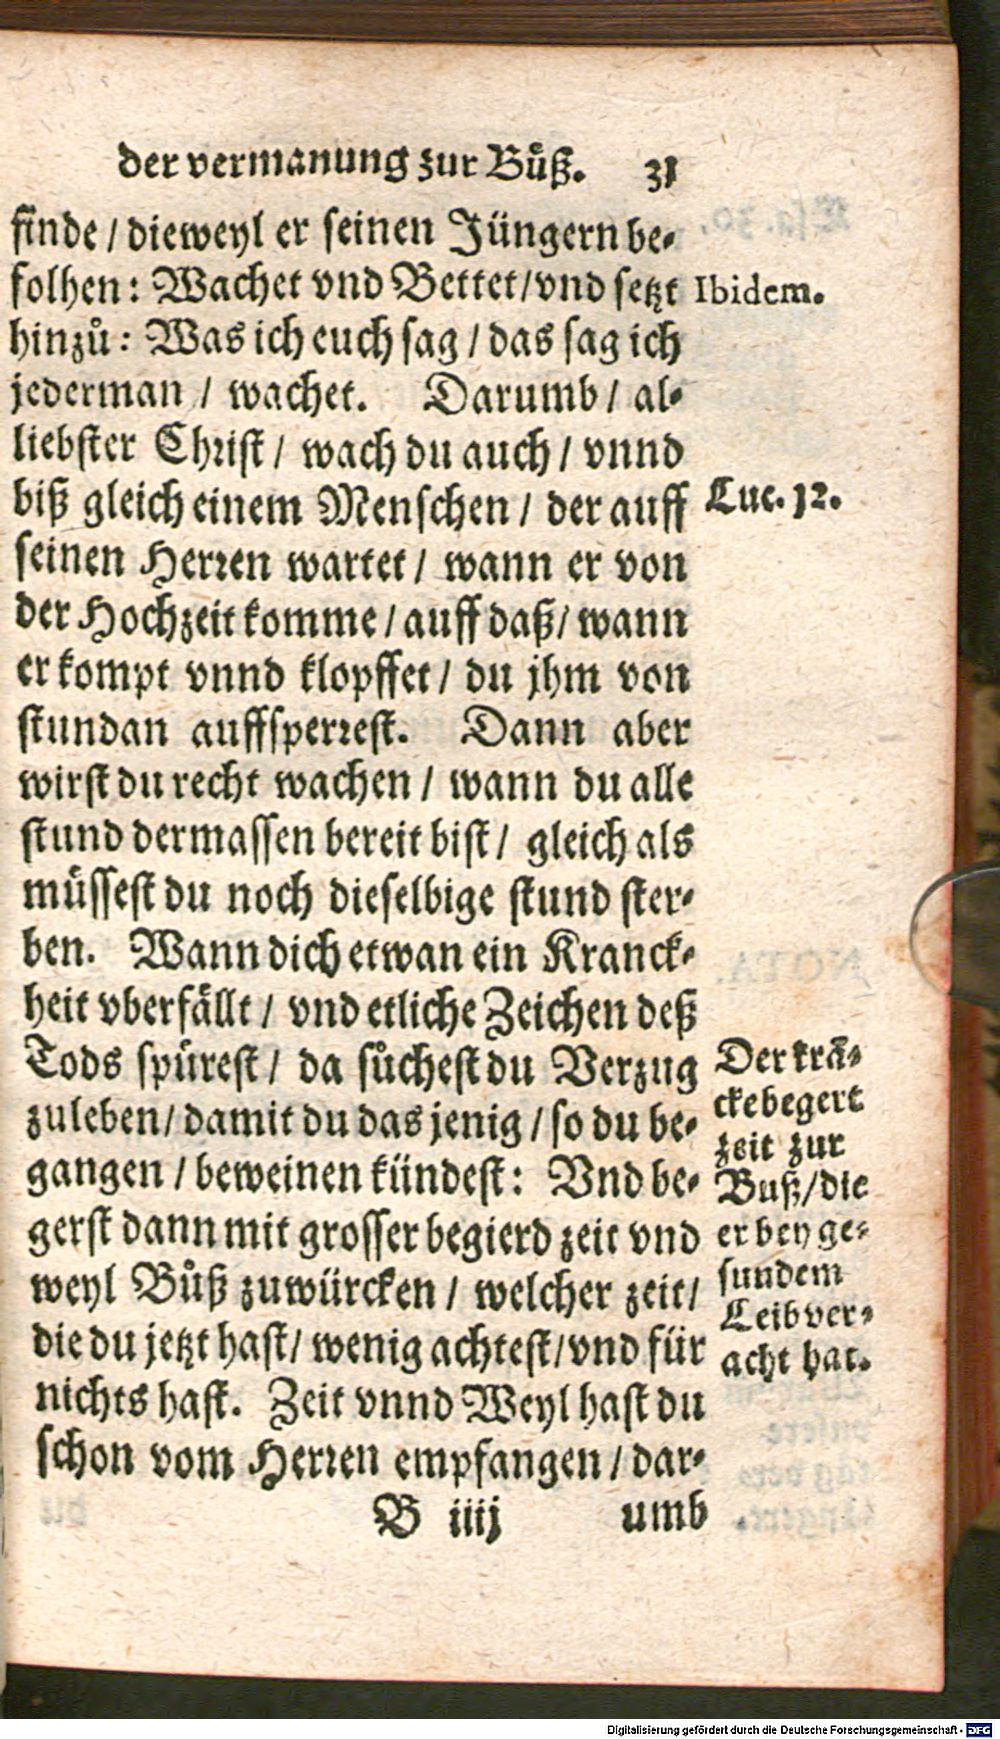 der vermanung zur Bůß. 31
finde / dieweyl er seinen Jüngern be-
folhen: Wachet vnd Bettet/vnd setzt
Ibidem.
hinzů: Was ich euch sag / das sag ich
jederman / wachet. Darumb / al-
liebster Christ / wach du auch / vnnd
biß gleich einem Menschen / der auff
Luc. 12.
seinen Herren wartet / wann er von
der Hochzeit komme / auff daß / wann
er kompt vnnd klopffet / du jhm von
stundan auffsperrest. Dann aber
wirst du recht wachen / wann du alle
stund dermassen bereit bist / gleich als
müssest du noch dieselbige stund ster-
ben. Wann dich etwan ein Kranck-
heit vberfällt / vnd etliche Zeichen deß
Tods spürest / da sůchest du Verzug
zuleben / damit du das jenig / so du be-
gangen / beweinen kündest: Vnd be-
gerst dann mit grosser begierd zeit vnd
weyl Bůß zuwürcken / welcher zeit /
die du jetzt hast / wenig achtest / vnd für
nichts hast. Zeit vnnd Weyl hast du
schon vom Herren empfangen / dar-
Der krā-
cke begert
zeit zur
Buß / die
er bey ge-
sundem
Leib ver-
acht hat.
B iiij umb
Digitalisierung gefördert durch die Deutsche Forschungsgemeinschaft - DFG